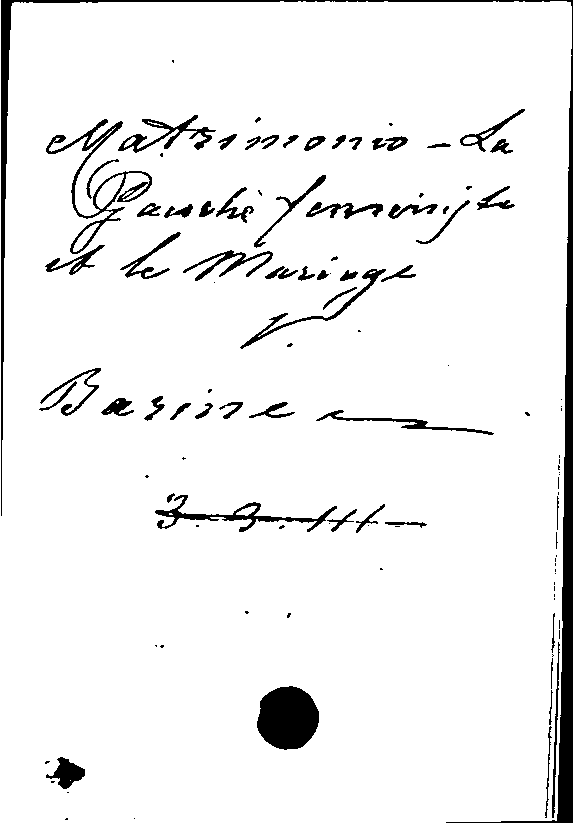 Matrimonio - La
Gauche féministe
et le Mariage
V.
Barine
3. 3. III